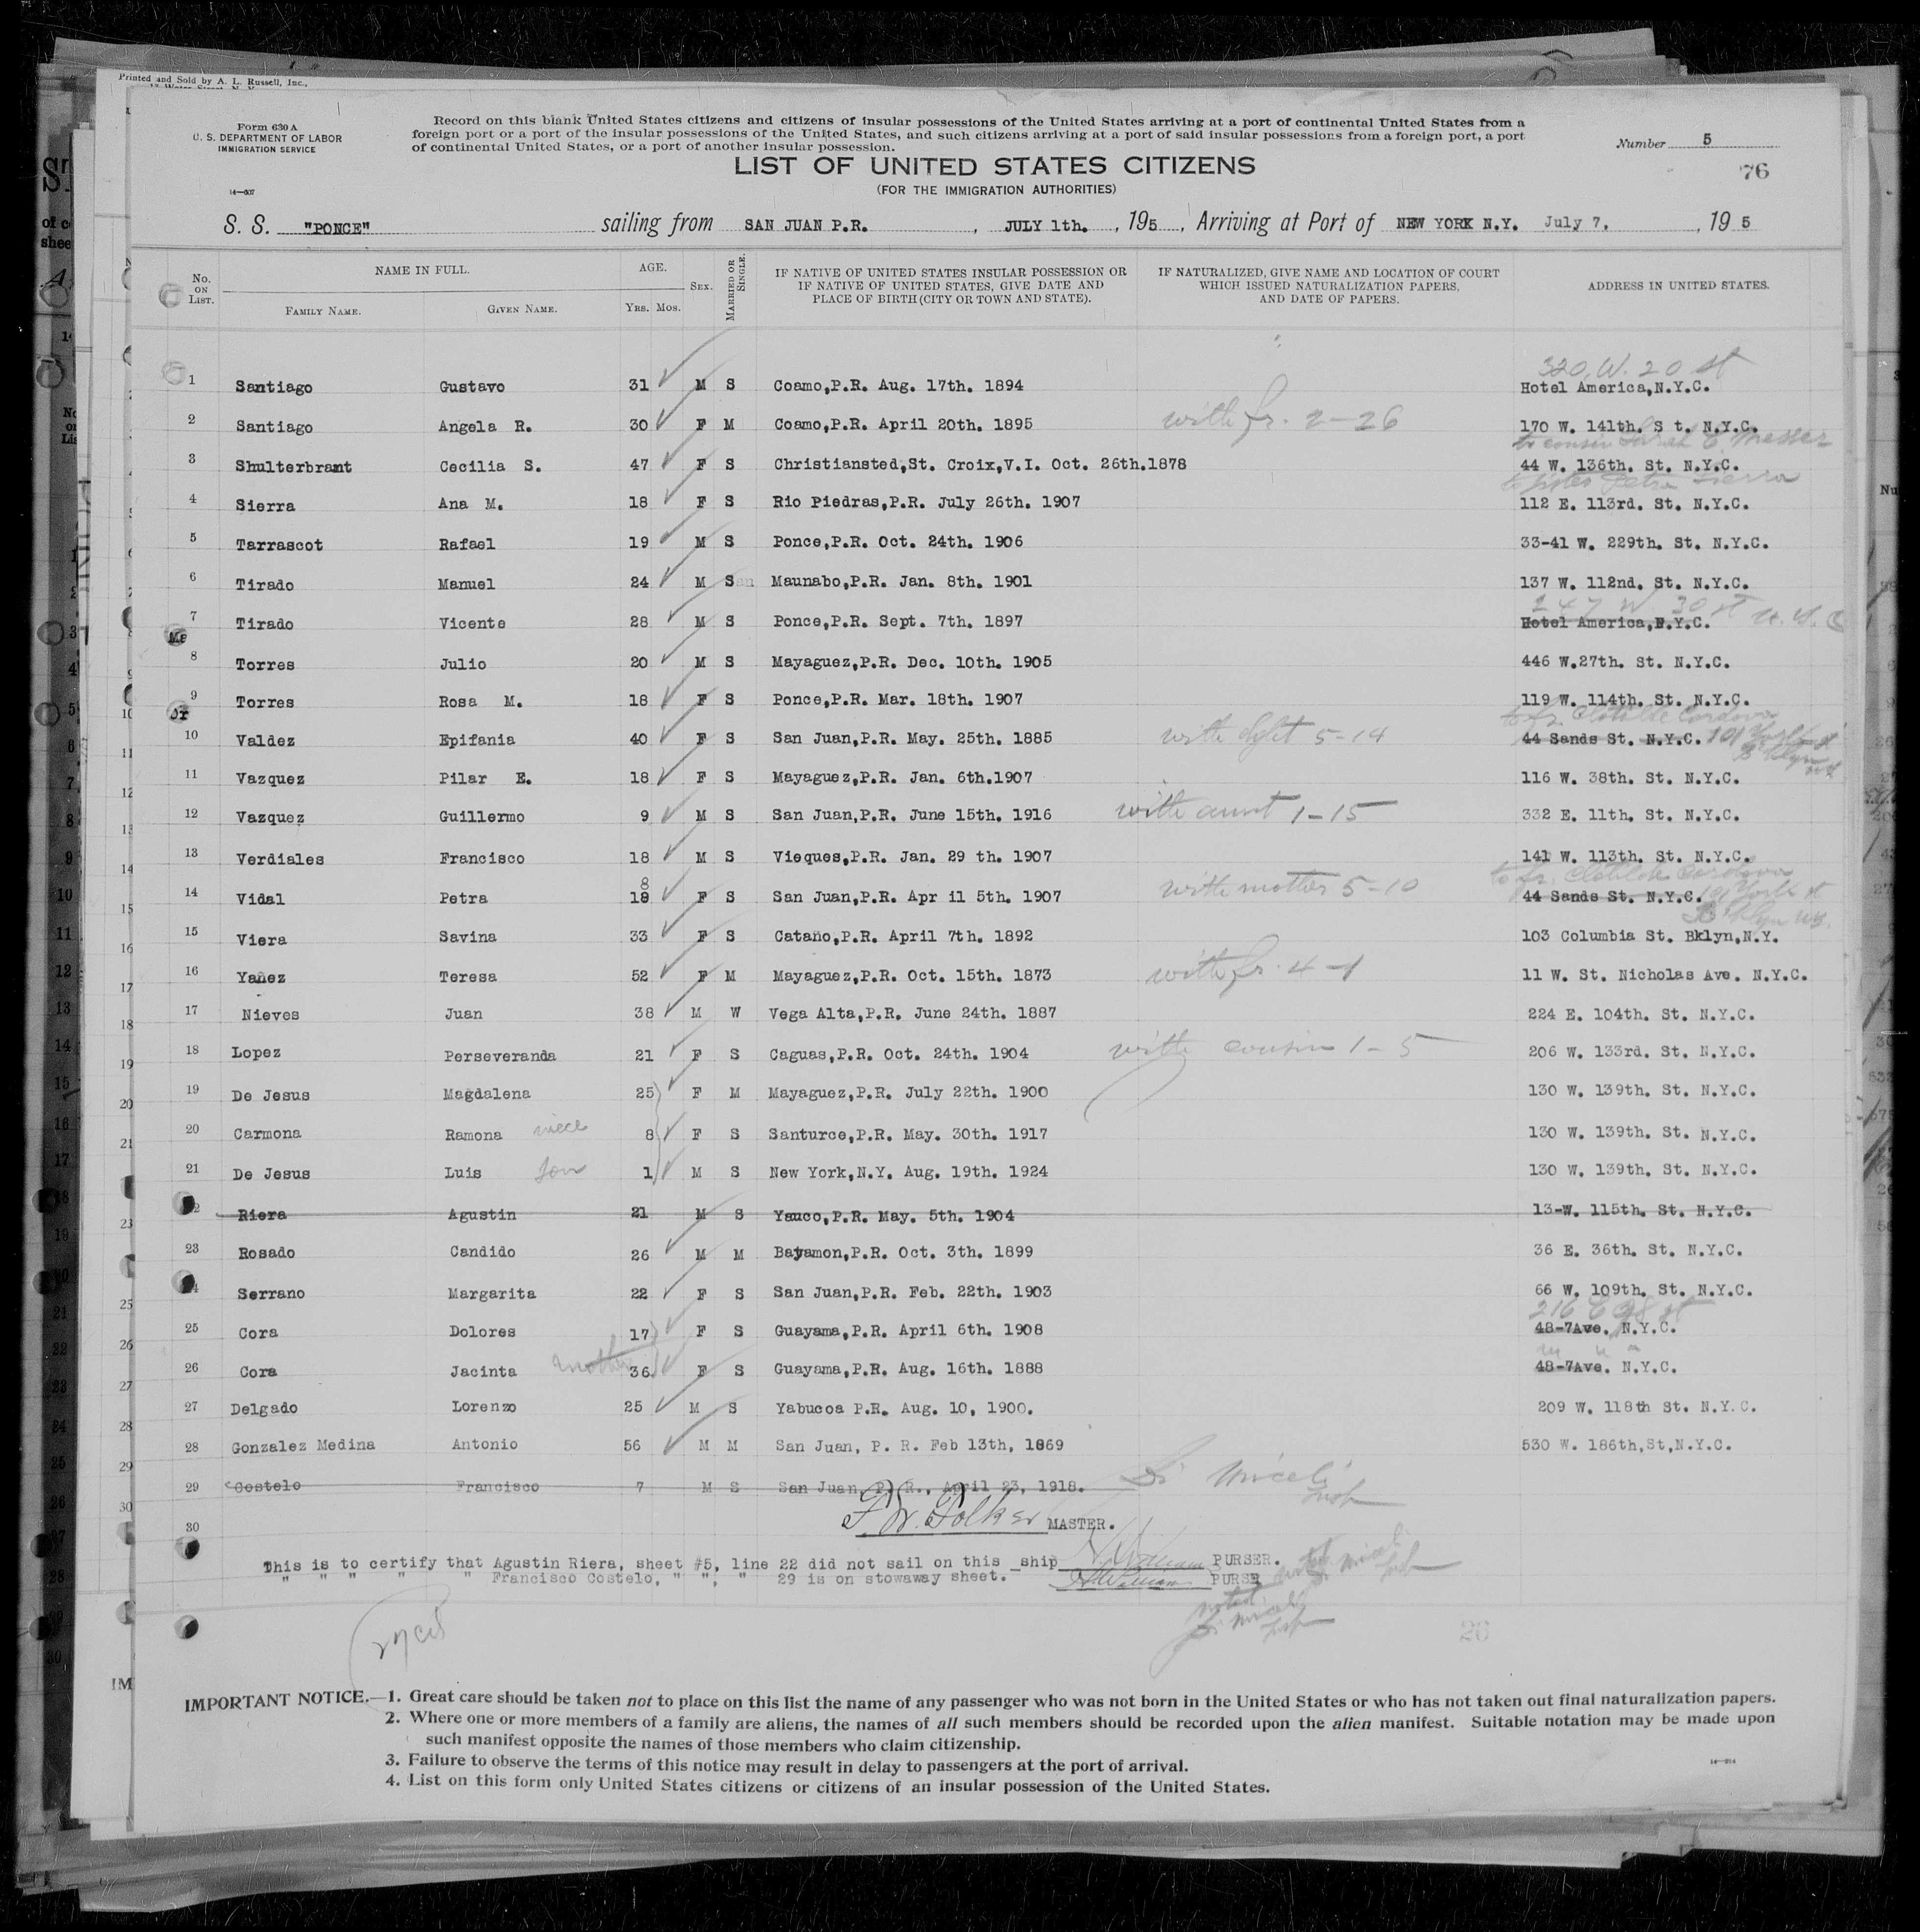 Printed and Sold by A. L. Russell, Inc.,
Form 630 A
U. S. DEPARTMENT OF LABOR
IMMIGRATION SERVICE
14—507
Record on this blank United States citizens and citizens of insular possessions of the United States arriving at a port of continental United States from a
foreign port or a port of the insular possessions of the United States, and such citizens arriving at a port of said insular possessions from a foreign port, a port
of continental United States, or a port of another insular possession.
Number 5
76
LIST OF UNITED STATES CITIZENS
(FOR THE IMMIGRATION AUTHORITIES)
S. S. "PONCE" sailing from SAN JUAN P.R. , JULY 1th. , 195 , Arriving at Port of NEW YORK N.Y. July 7, , 19 5
No. ON LIST. NAME IN FULL. FAMILY NAME. GIVEN NAME. AGE. YRS. MOS. SEX. MARRIED OR SINGLE. IF NATIVE OF UNITED STATES INSULAR POSSESSION OR IF NATIVE OF UNITED STATES, GIVE DATE AND PLACE OF BIRTH (CITY OR TOWN AND STATE). IF NATURALIZED, GIVE NAME AND LOCATION OF COURT WHICH ISSUED NATURALIZATION PAPERS, AND DATE OF PAPERS. ADDRESS IN UNITED STATES.
320 W. 20 St
1 Santiago Gustavo 31 M S Coamo,P.R. Aug. 17th. 1894 Hotel America,N.Y.C.
2 Santiago Angela R. 30 F M Coamo,P.R. April 20th. 1895 with fr. 2-26 170 W. 141th. S t. N.Y.C.
to cousin Sarah E. Messer
3 Shulterbrant Cecilia S. 47 F S Christiansted,St. Croix,V.I. Oct. 26th.1878 44 W. 136th. St. N.Y.C.
to sister Petra Sierra
4 Sierra Ana M. 18 F S Rio Piedras,P.R. July 26th. 1907 112 E. 113rd. St. N.Y.C.
5 Tarrascot Rafael 19 M S Ponce,P.R. Oct. 24th. 1906 33-41 W. 229th. St. N.Y.C.
6 Tirado Manuel 24 M S Maunabo,P.R. Jan. 8th. 1901 137 W. 112nd. St. N.Y.C.
247 W 30 St N.Y.C
7 Tirado Vicente 28 M S Ponce,P.R. Sept. 7th. 1897 Hotel America,N.Y.C.
8 Torres Julio 20 M S Mayaguez,P.R. Dec. 10th. 1905 446 W.27th. St. N.Y.C.
9 Torres Rosa M. 18 F S Ponce,P.R. Mar. 18th. 1907 119 W. 114th. St. N.Y.C.
to fr. Clotilde Cordova
10 Valdez Epifania 40 F S San Juan,P.R. May. 25th. 1885 with dght 5-14 44 Sands St. N.Y.C. 101 York St
Bklyn
11 Vazquez Pilar E. 18 F S Mayaguez,P.R. Jan. 6th.1907 116 W. 38th. St. N.Y.C.
12 Vazquez Guillermo 9 M S San Juan,P.R. June 15th. 1916 with aunt 1-15 332 E. 11th. St. N.Y.C.
13 Verdiales Francisco 18 M S Vieques,P.R. Jan. 29 th. 1907 141 W. 113th. St. N.Y.C.
8 to fr. Clotilde Cordova
14 Vidal Petra 18 F S San Juan,P.R. Apr il 5th. 1907 with mother 5-10 44 Sands St. N.Y.C. 101 York St
Bklyn NY.
15 Viera Savina 33 F S Cataño,P.R. April 7th. 1892 103 Columbia St. Bklyn,N.Y.
16 Yañez Teresa 52 F M Mayaguez,P.R. Oct. 15th. 1873 with fr. 4-1 11 W. St. Nicholas Ave. N.Y.C.
17 Nieves Juan 38 M W Vega Alta,P.R. June 24th. 1887 224 E. 104th. St. N.Y.C.
18 Lopez Perseveranda 21 F S Caguas,P.R. Oct. 24th. 1904 with cousin 1-5 206 W. 133rd. St. N.Y.C.
19 De Jesus Magdalena 25 F M Mayaguez,P.R. July 22th. 1900 130 W. 139th. St. N.Y.C.
20 Carmona Ramona niece 8 F S Santurce,P.R. May. 30th. 1917 130 W. 139th. St. N.Y.C.
21 De Jesus Luis Son 1 M S New York,N.Y. Aug. 19th. 1924 130 W. 139th. St. N.Y.C.
2 Riera Agustin 21 M S Yauco,P.R. May. 5th. 1904 13-W. 115th. St. N.Y.C.
23 Rosado Candido 26 M M Bayamon,P.R. Oct. 3th. 1899 36 E. 36th. St. N.Y.C.
4 Serrano Margarita 22 F S San Juan,P.R. Feb. 22th. 1903 66 W. 109th. St. N.Y.C.
216 E 98 St
25 Cora Dolores 17 F S Guayama,P.R. April 6th. 1908 48-7Ave. N.Y.C.
26 Cora Jacinta mother 36. F S Guayama,P.R. Aug. 16th. 1888 48-7Ave. N.Y.C.
27 Delgado Lorenzo 25 M S Yabucoa P.R. Aug. 10, 1900. 209 W. 118th St. N.Y.C.
28 Gonzalez Medina Antonio 56 M M San Juan, P. R. Feb 13th, 1869 530 W. 186th,St,N.Y.C.
29 Costelo Francisco 7 M S San Juan, P. R., April 23, 1918. Di Miceli
Insp
30 F. W. Folker MASTER.
This is to certify that Agustin Riera, sheet #5, line 22 did not sail on this ship PURSER.
" " " " " Francisco Costelo, " ", " 29 is on stowaway sheet. PURSE
noted Di Miceli Insp
noted.
Di Miceli
Insp
26
IMPORTANT NOTICE.—1. Great care should be taken not to place on this list the name of any passenger who was not born in the United States or who has not taken out final naturalization papers.
2. Where one or more members of a family are aliens, the names of all such members should be recorded upon the alien manifest. Suitable notation may be made upon
such manifest opposite the names of those members who claim citizenship.
3. Failure to observe the terms of this notice may result in delay to passengers at the port of arrival.
4. List on this form only United States citizens or citizens of an insular possession of the United States.